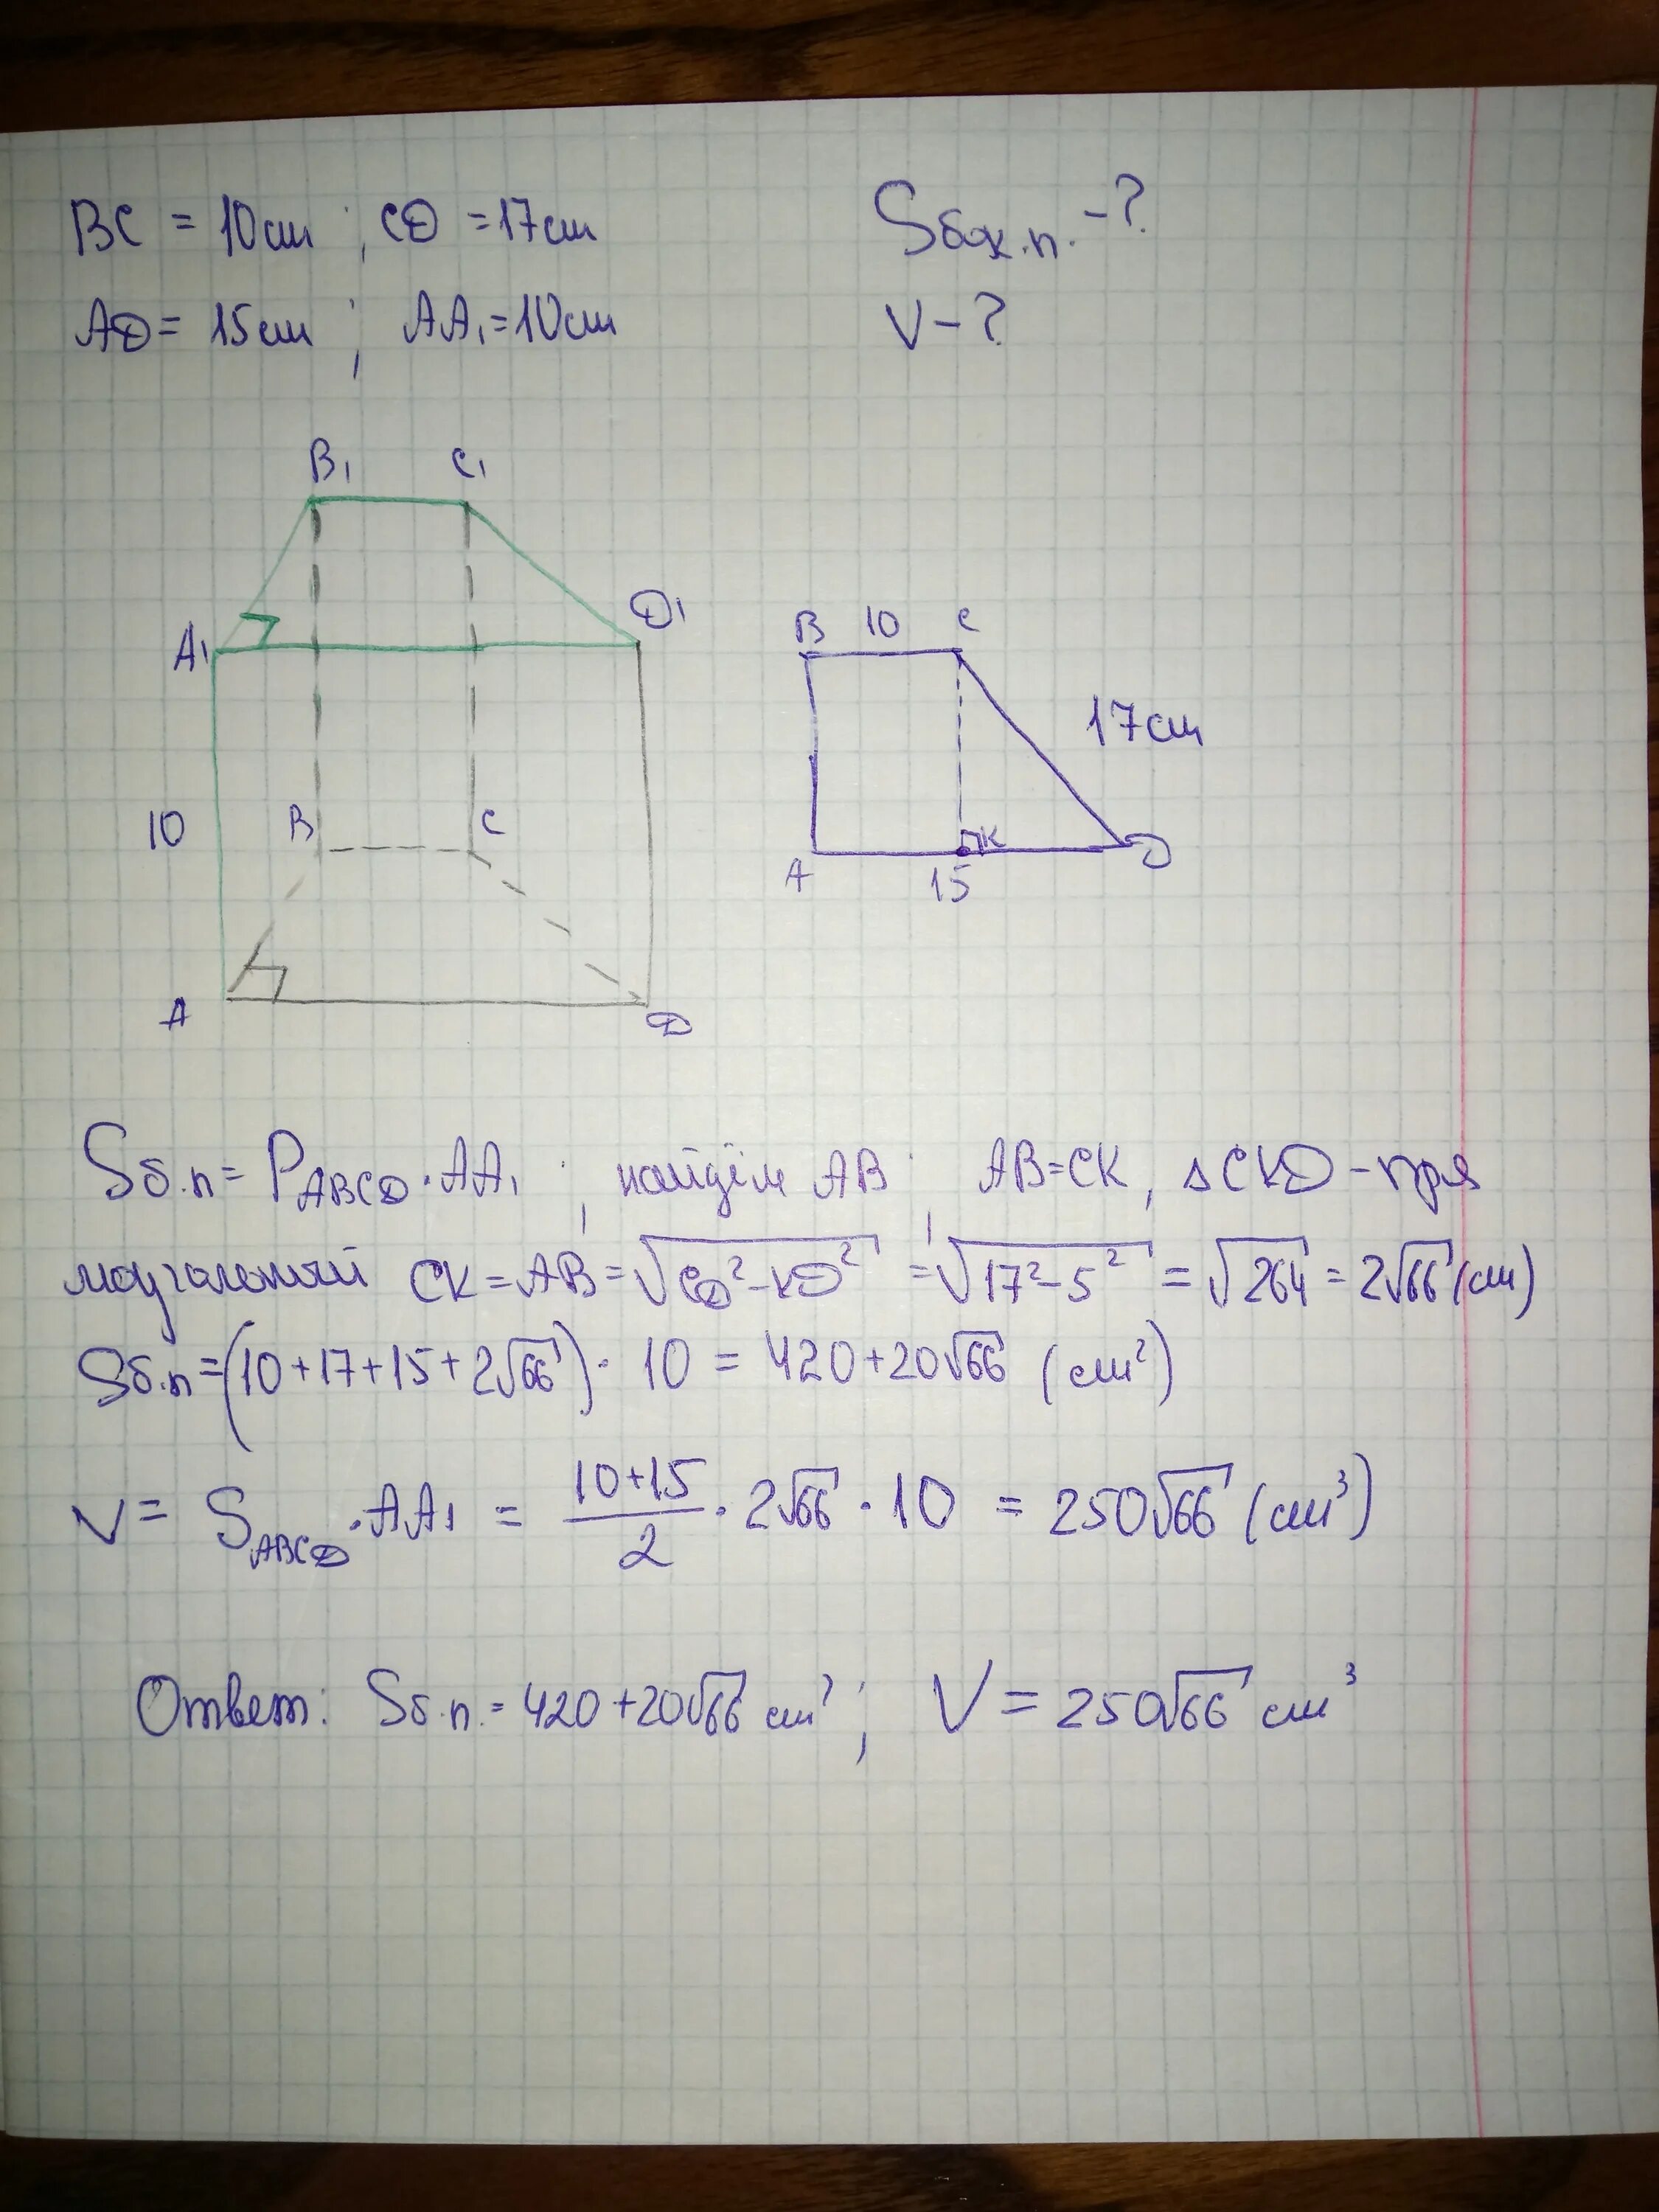 BC = 10см ; CD = 17см
Sбок.п. - ?
AD = 15см ; AA₁ = 10см
V - ?
B₁ C₁
A₁ D₁
B 10 C
17см
10 B C
K
A 15 D
A D
Sб.п = P_ABCD · AA₁ ; найдём AB ; AB = CK, △CKD - пря
моугольный CK = AB = √(CD² - KD²) = √(17² - 5²) = √264 = 2√66 (см)
Sб.п = (10 + 17 + 15 + 2√66) · 10 = 420 + 20√66 (см²)
V = S_ABCD · AA₁ = (10+15)/2 · 2√66 · 10 = 250√66 (см³)
Ответ: Sб.п. = 420 + 20√66 см² ; V = 250√66 см³